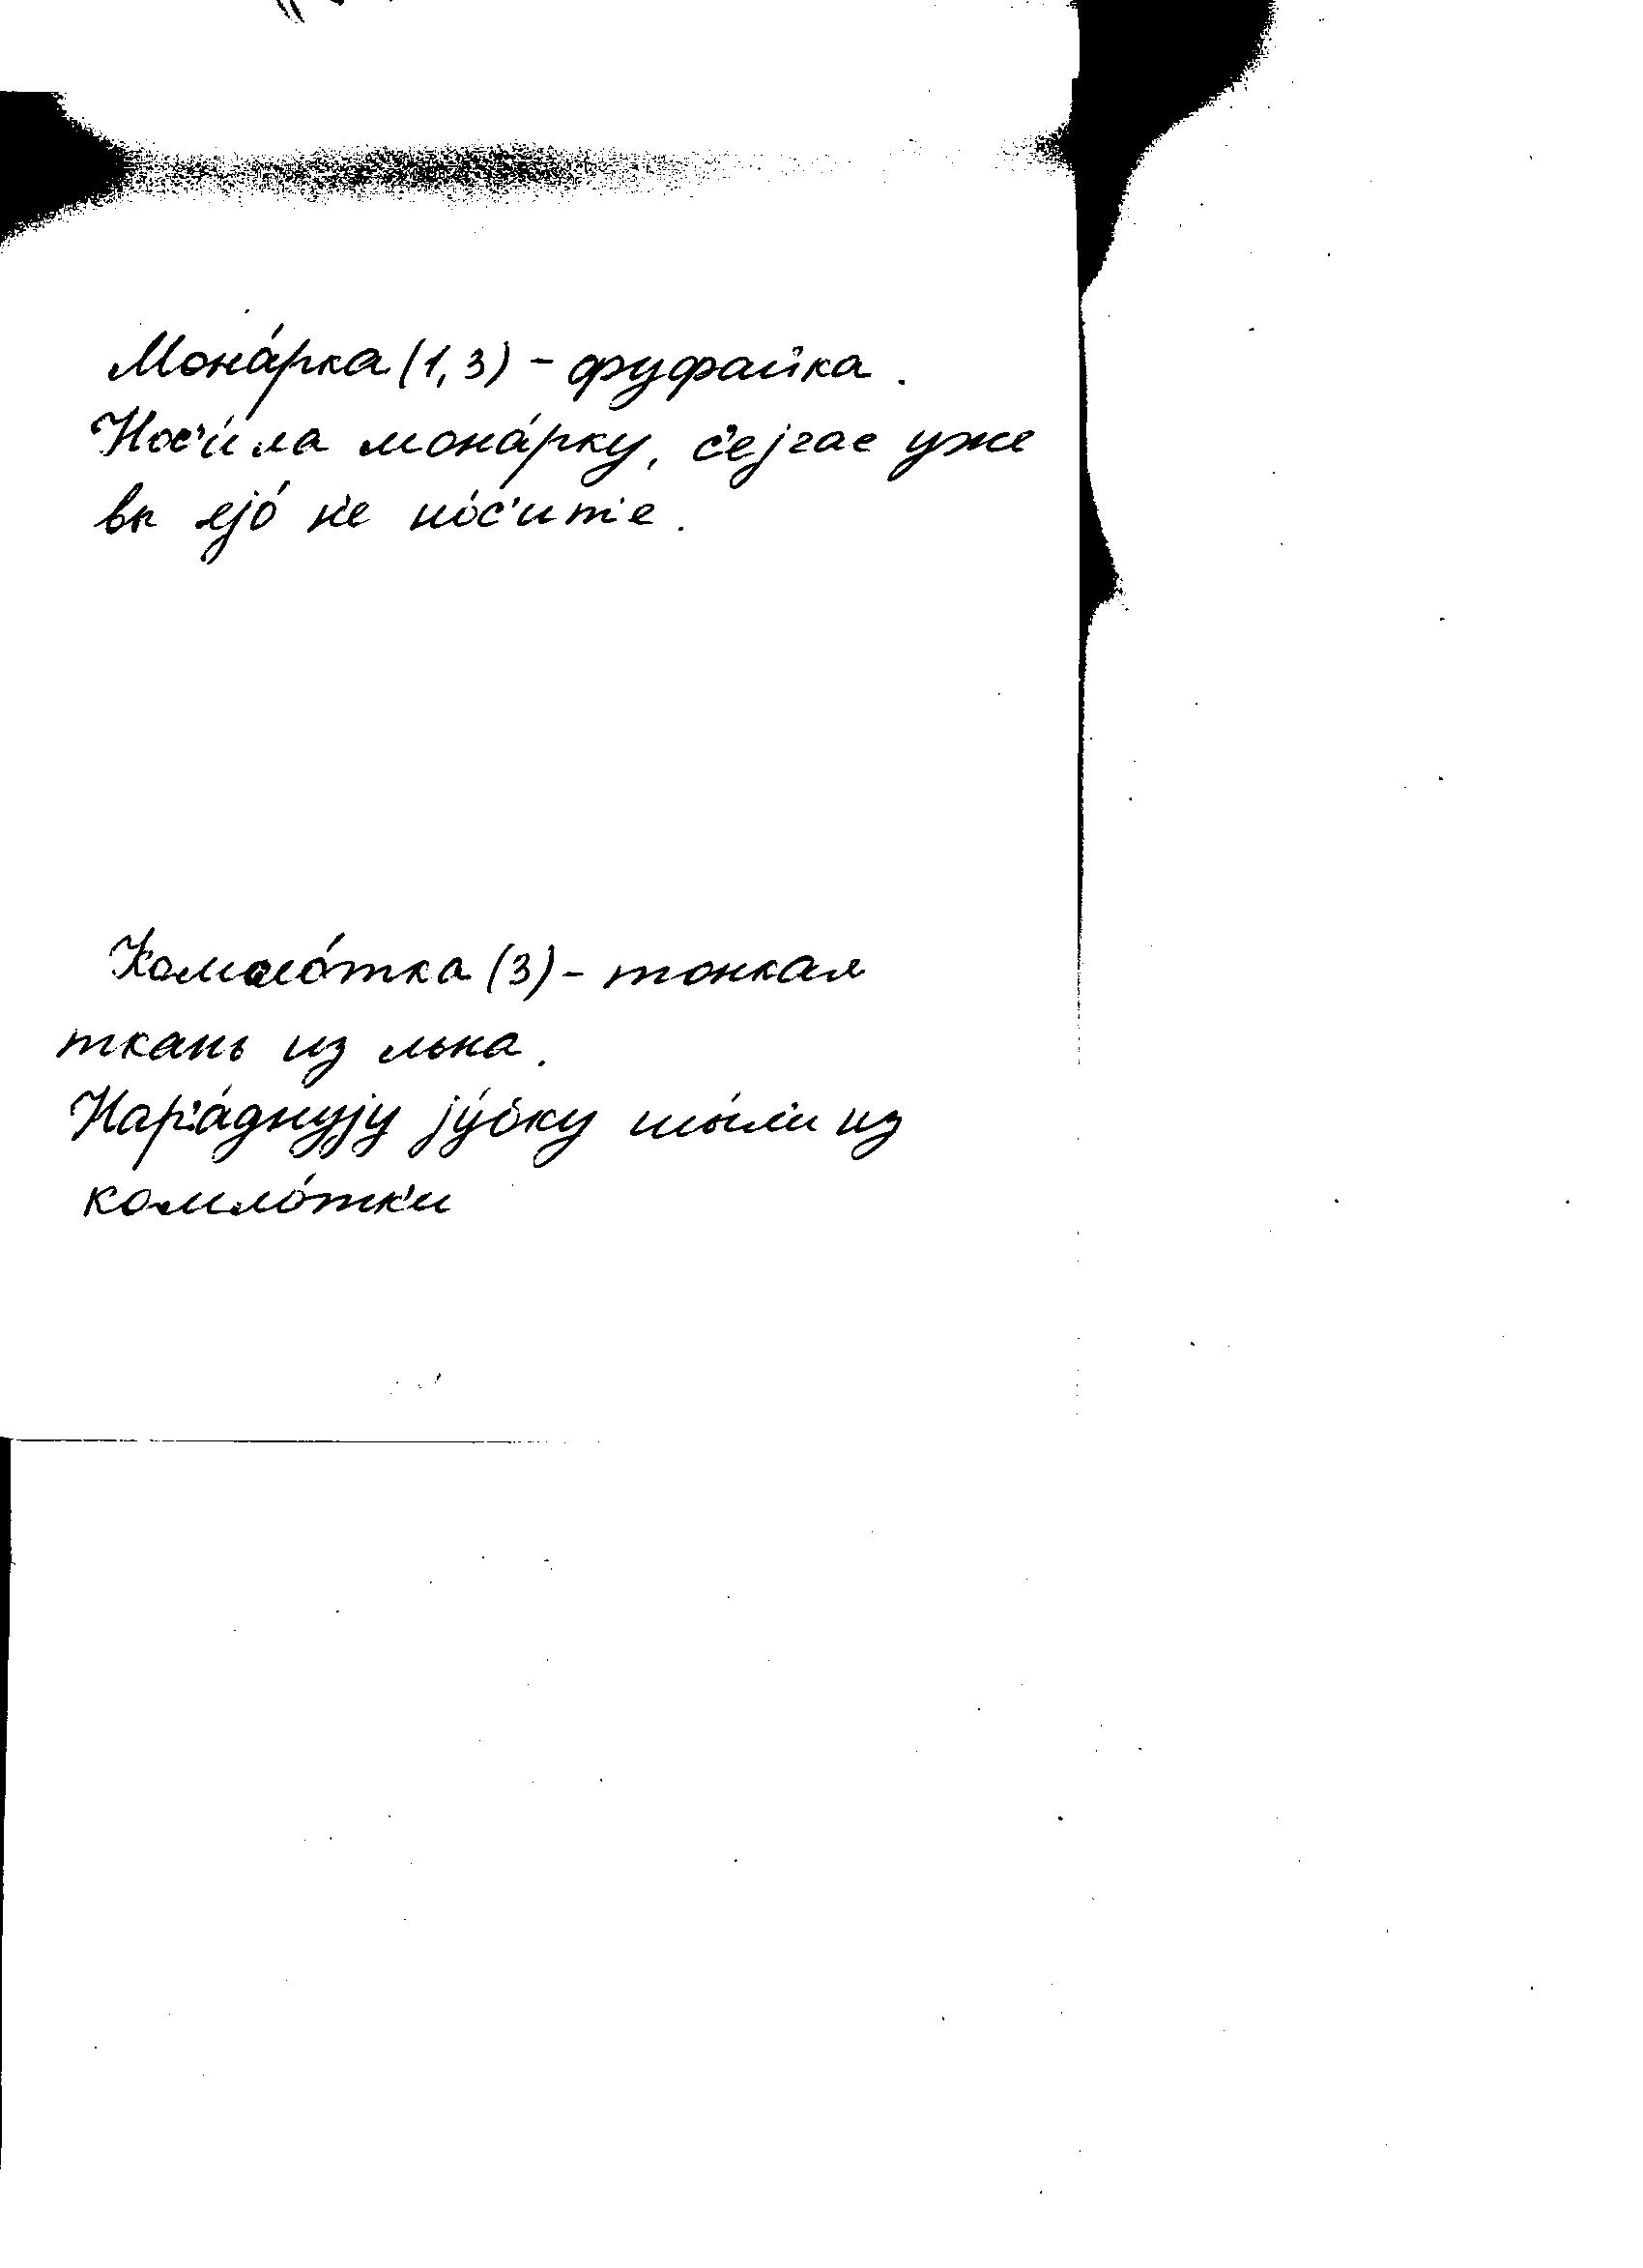 Мона́рка (1,3) – фуфайка.
Нос'и́ла мона́рку, с'еjчас уже
вы еjо́ н'е но́с'ит'е.
Комло́тка (3) – тонкая
ткань из льна.
Нар'а́днуjу jу́бку шы́л'и из
комло́тк'и